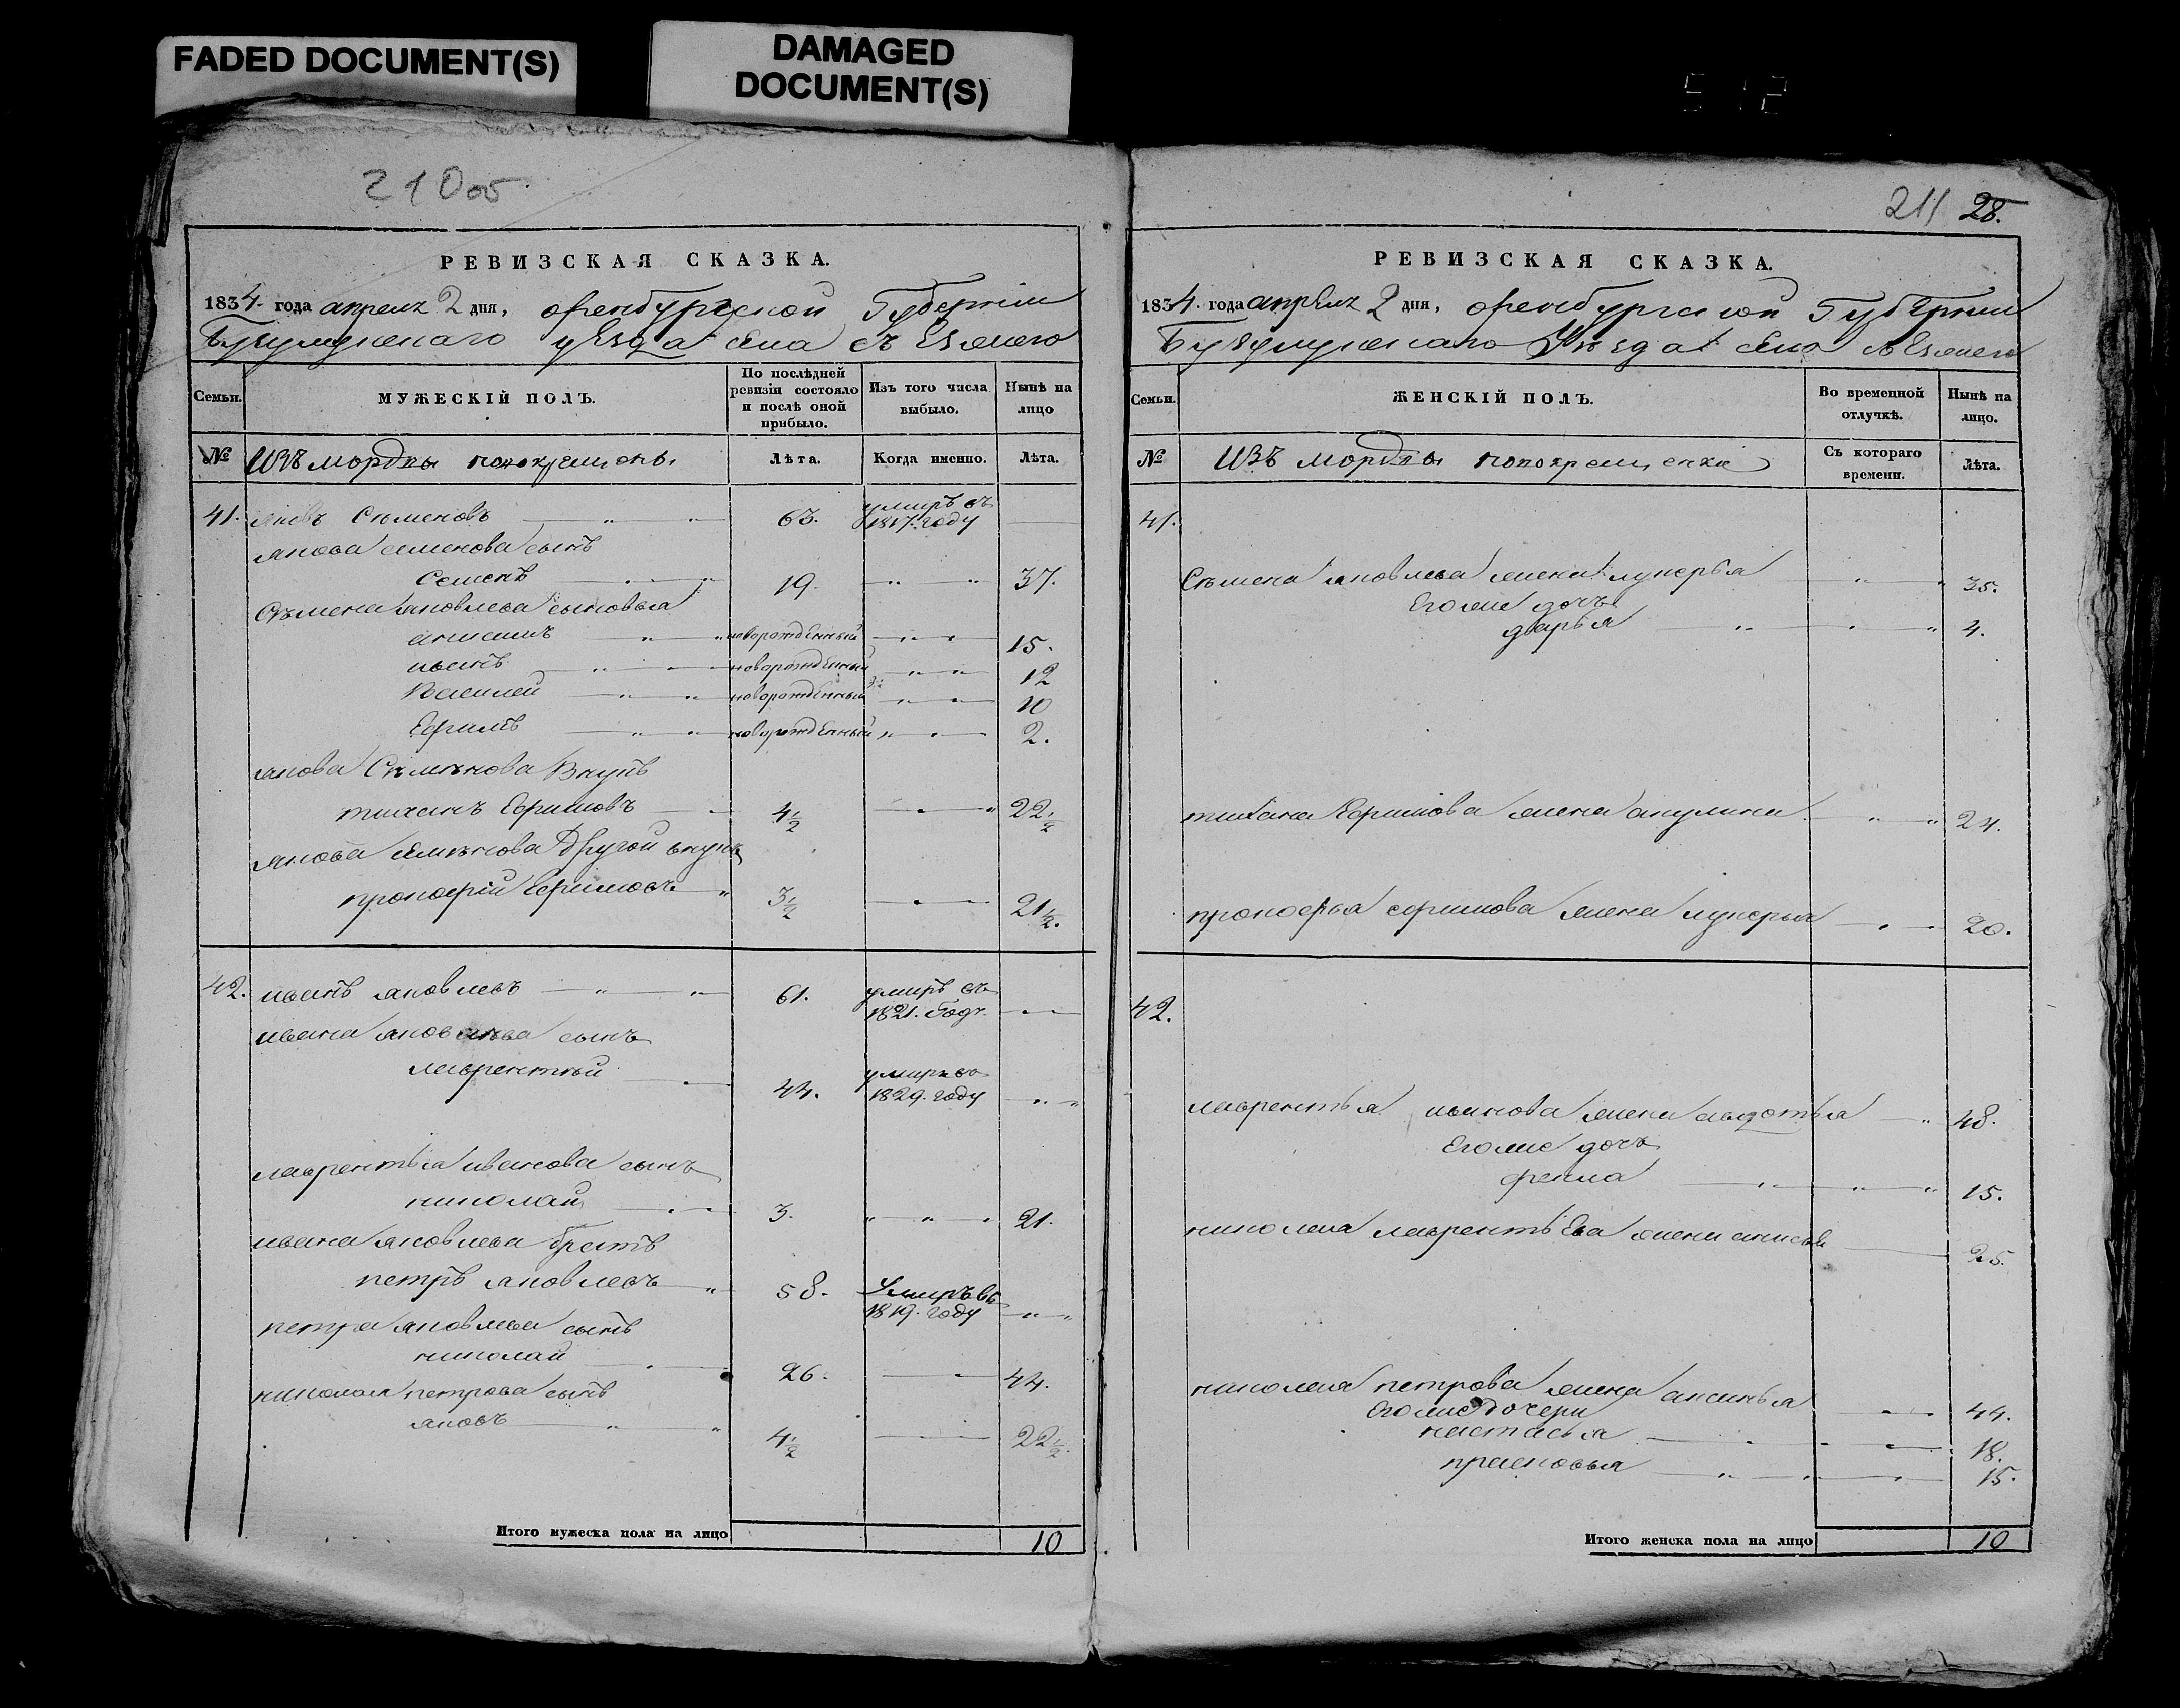 FADED DOCUMENT(S)
DAMAGED
DOCUMENT(S)
512
210об.
РЕВИЗСКАЯ СКАЗКА.
1834. года апреля 2 дня, оренбургской Губернии
Бугульминскаго уезда села
Семьи.
МУЖЕСКІЙ ПОЛЪ.
По послѣдней ревизіи состояло и послѣ оной прибыло.
Изъ того числа выбыло.
Нынѣ на лицо
№ Изъ мордвы новокрещены
Лѣта.
Когда именно.
Лѣта.
41. яковъ Семеновъ 63. умиръ въ 1817. году
якова семенова сынъ
Семенъ 19. 37.
Семена яковлева сыновья
анисимъ новорожденный 15.
иванъ новорожденный 12
Василей новорожденный 10
Ефимъ новорожденный 2.
якова Семенова Внукъ
тиханъ Ефимовъ 4 1/2 22 1/2
якова семенова другой внукъ
прокофій Ефимовъ 3 1/2 21 1/2.
42. иванъ яковлевъ 61. умиръ въ 1821. Годъ.
ивана яковлева сынъ
лаврентий 44. умиръ въ 1829. году
лаврентья иванова сынъ
николай 3. 21.
ивана яковлева братъ
петръ яковлевъ 58. Умиръ въ 1819. году
петра яковлева сынъ
николай 26. 44.
николая петрова сынъ
яковъ 4 1/2 22 1/2.
Итого мужеска пола на лицо 10
211 28.
РЕВИЗСКАЯ СКАЗКА.
1834. года апреля 2 дня, оренбургской Губернии
Бугульминскаго Уезда села
Семьи.
ЖЕНСКІЙ ПОЛЪ.
Во временной отлучкѣ.
Нынѣ на лицо.
№ Изъ мордвы новокрещенки
Съ котораго времени.
Лѣта.
41.
Семена яковлева жена лукерья 35.
Его же дочь
дарья 4.
тихана Ефимова жена акулина 24.
прокофья ефимова жена лукерья 20.
42.
лаврентья иванова жена авдотья 48.
Его же дочь
фекла 15.
николая лаврентьева жена 25.
николая петрова жена аксинья 44.
Его же дочери
настасья 18.
прасковья 15.
Итого женска пола на лицо 10